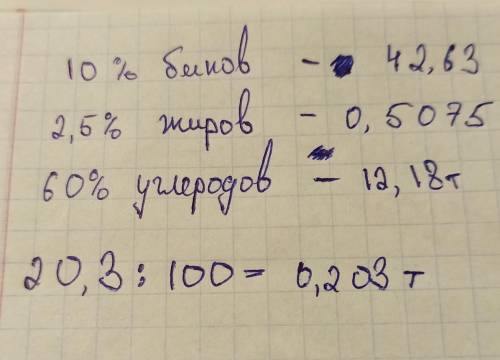 10 % белков - 42,63
2,5% жиров - 0,5075
60% углеродов - 12,18т
20,3 : 100 = 0,203 т